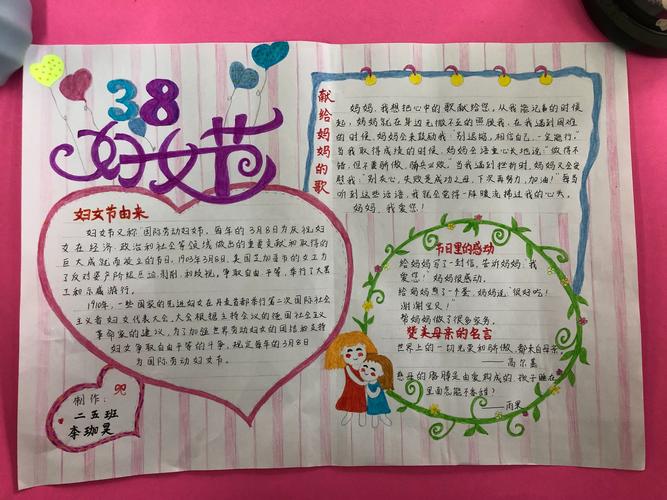 38
妇女节
妇女节由来
妇女节又称"国际劳动妇女节,每年的3月8为庆祝妇
女在经济、政治和社会等领域做出的重要贡献和取得的
巨大成就而设立的节日。1903年3月8日,美国芝加哥市的女工为
了反对资产阶级压迫、剥削、和歧视,争取自由、平等,举行了大罢
工和示威游行。
1910年,一些国家的先进妇女在丹麦首都举行第二次国际社会
主义者妇女代表大会,大会根据主持会议的德国社会主义
革命家的建议,为了加强世界劳动妇女的团结和支持
妇女争取自由平等的斗争,规定每年的3月8日
为国际劳动妇女节。
制作:
二五班
李珈昊
献给妈妈的歌
妈妈,我想把心中的歌献给您,从我能记事的时候
起,妈妈就在身边无微不至的照顾我,在我遇到困难
的时候,妈妈会来鼓励我:"别退编,相信自己,一定能行。"
当我取得成绩的时候,妈妈会语重心长地说:"做得不
错,但不要骄傲,骄兵必败。"当我遇到挫折时,妈妈又会安
慰我:"别灰心,失败是成功之母,下次再努力,加油!"每当
听到这些话语,我就会觉得一阵暖流拂过我的心头。
妈妈,我爱您!
节日里的感动
给妈妈写了一封信,告诉妈妈"我
爱您!"妈妈很感动。
给妈妈 了一个 ,妈妈说"很好吃!
谢谢宝贝!
帮妈妈做了很多家务。
赞美母亲的名言
世界上的一切光荣和骄傲,都来自母亲
——高尔基
慈母的胳膊是由爱构成的,孩子睡在
里面怎能不香甜?
——雨果